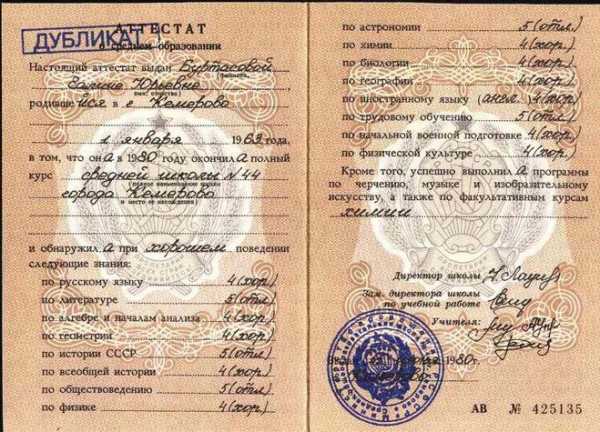 АТТЕСТАТ
ДУБЛИКАТ
о среднем образовании
Настоящий аттестат выдан Буртасовой
Галине Юрьевне
(имя, отчество)
родившейся в г. Кемерово
1 января 1963 года,
в том, что она в 1980 году окончила полный
курс средней школы № 44
(полное наименование школы
города Кемерово
и место ее нахождения)
и обнаружил а при хорошем поведении
следующие знания:
по русскому языку 4(хор.)
по литературе 5(отл)
по алгебре и началам анализа 4(хор.)
по геометрии 4(хор.)
по истории СССР 5(отл)
по всеобщей истории 4(хор.)
по обществоведению 5(отл)
по физике 4(хор.)
по астрономии 5(отл.)
по химии 4(хор.)
по биологии 4(хор.)
по географии 4(хор.)
по иностранному языку (англ.) 4(хор.)
по трудовому обучению 5(отл.)
по начальной военной подготовке 4(хор.)
по физической культуре 4(хор.)
Кроме того, успешно выполнил а программы
по черчению, музыке и изобразительному
искусству, а также по факультативным курсам
химии
Директор школы
Зам. директора школы
по учебной работе
Учителя:
1980 г.
АВ № 425135